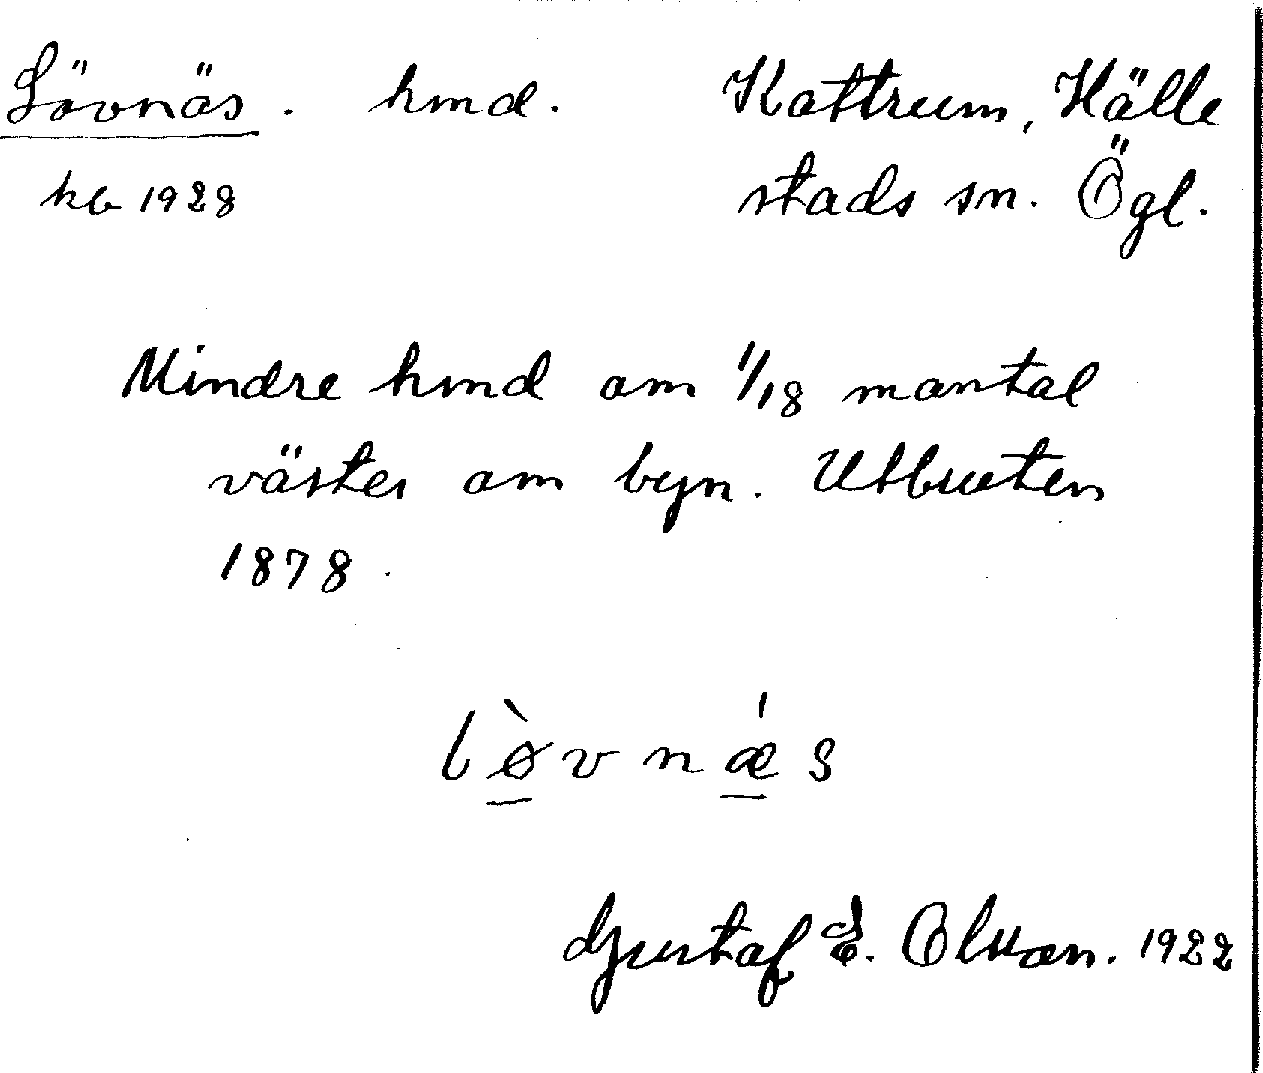 Lövnäs. hmd. Kattrum, Hälle
hb 1928 stads sn. Ögl.
Mindre hmd om 1/18 mantal
väster om byn. Utbruten
1878.
lø̀vnǽs
Gustaf E. Olsson. 1922